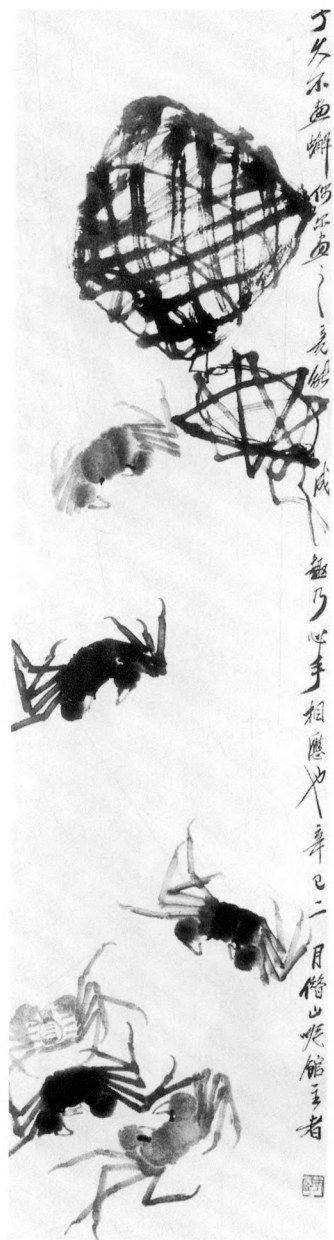 予久不画蟹偶尔画之竟能成趣乃心手相應也辛巳二月借山吟館主者